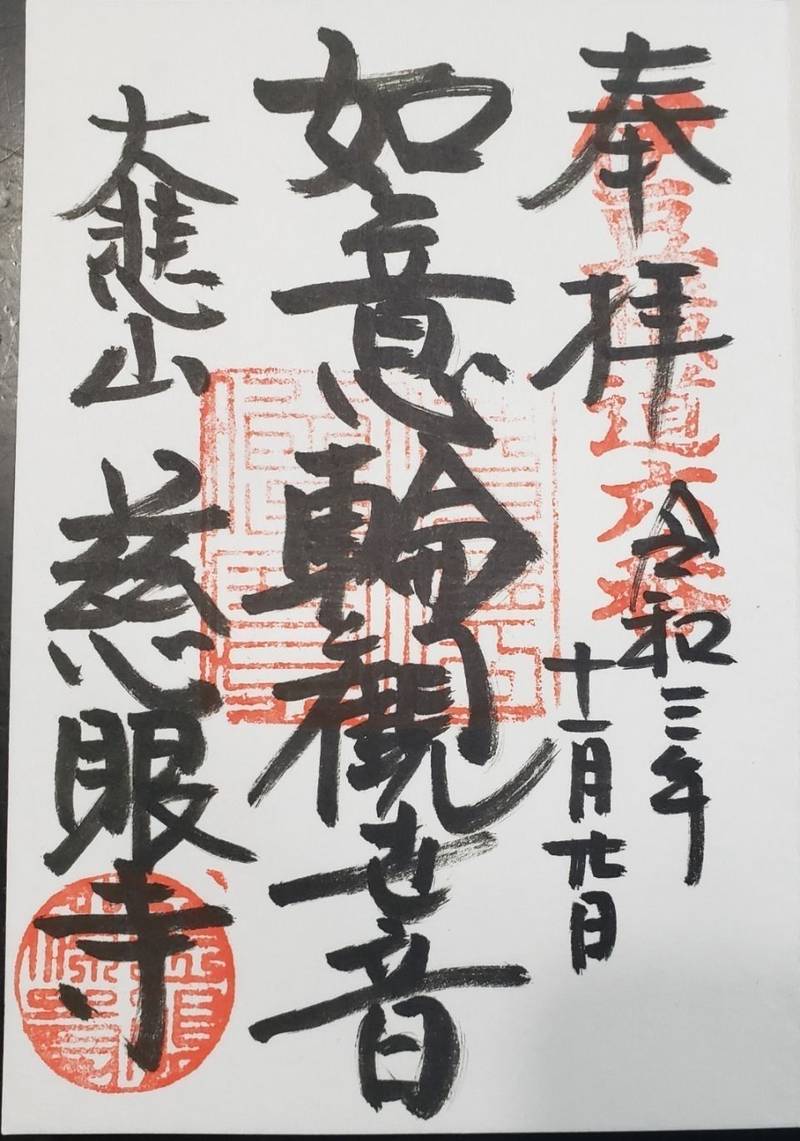 奉拝
令和三年
十一月廿日
如意輪観世音
大悲山 慈眼寺